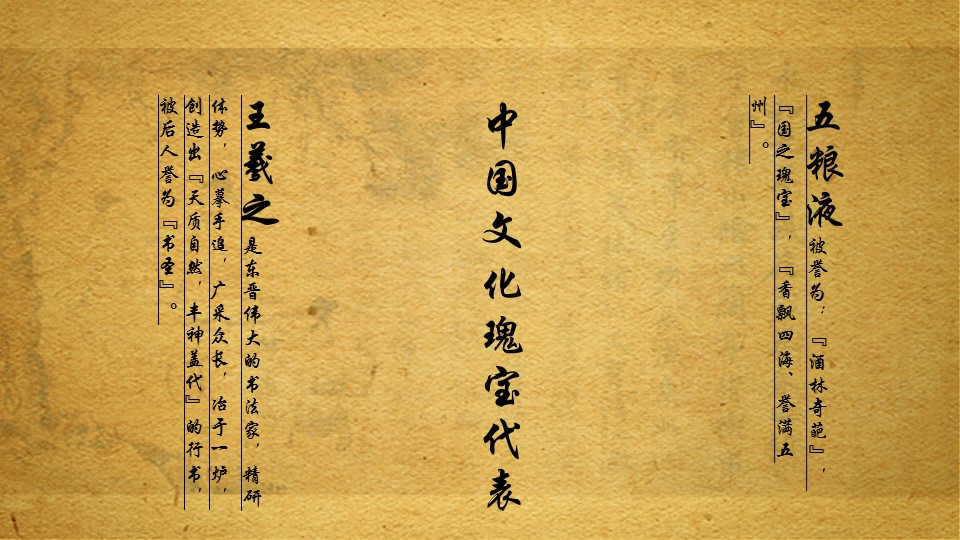 五粮液被誉为：『酒林奇葩』，
『国之瑰宝』，『香飘四海、誉满五
州』。
中国文化瑰宝代表
王羲之是东晋伟大的书法家，精研
体势，心摹手追，广采众长，冶于一炉，
创造出『天质自然，丰神盖代』的行书，
被后人誉为『书圣』。